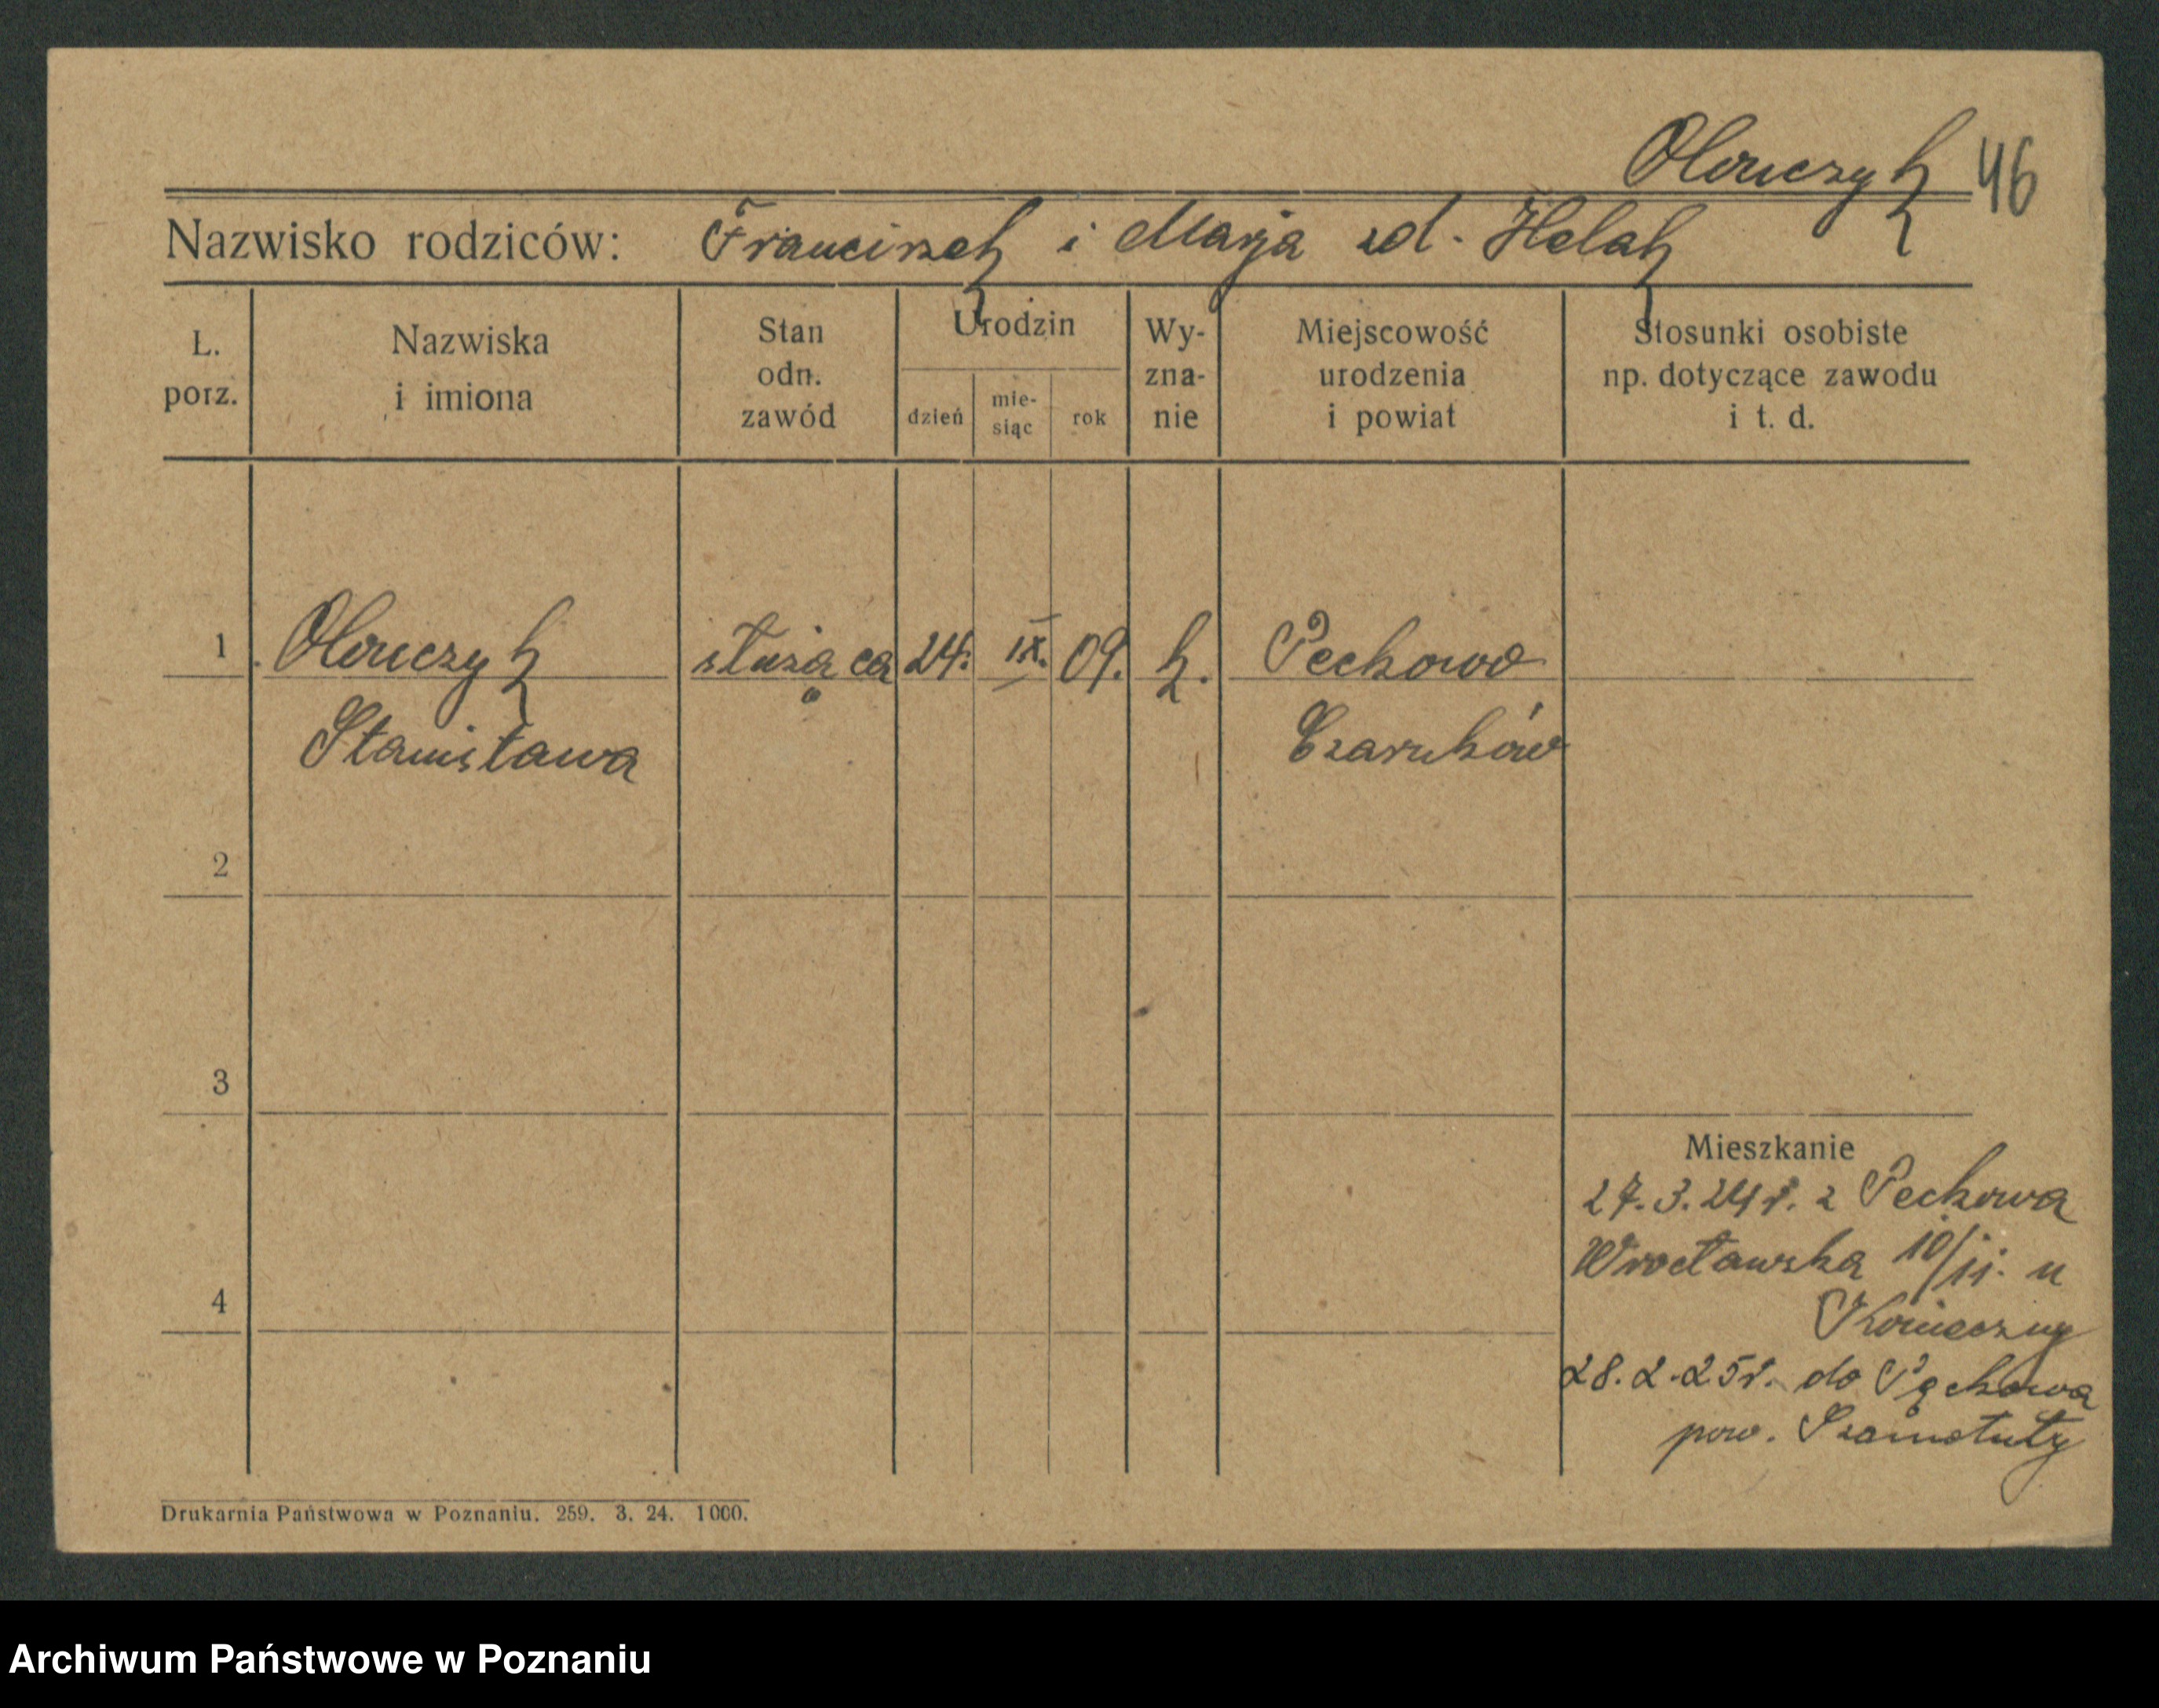 Olenczyk 46
Nazwisko rodziców: Franciszek i Marja zd. Helak
L. porz.
Nazwiska i imiona
Stan odn. zawód
Urodzin
dzień
mie-siąc
rok
Wy-zna-nie
Miejscowość urodzenia i powiat
Stosunki osobiste np. dotyczące zawodu i t. d.
1 Olenczyk służąca 24. IX. 09. k. Peckowo
Stanisława Czarnków
2
3
4
Mieszkanie
27.3.24 r. z Peckowa
Wrocławska 10/II. u
28.2.25 r. do Pęckowa
pow. Szamotuły
Drukarnia Państwowa w Poznaniu. 259. 3. 24. 1000.
Archiwum Państwowe w Poznaniu